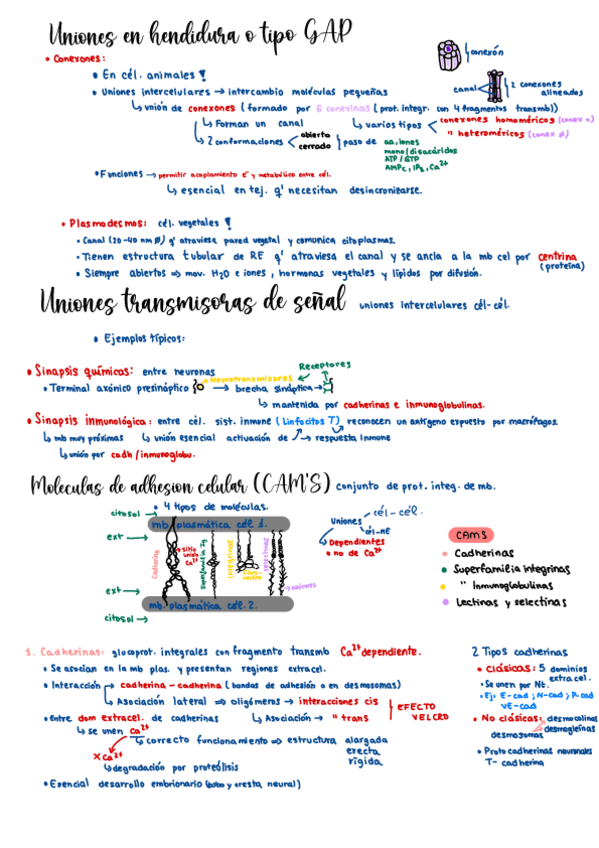 Uniones en hendidura o tipo GAP
• Conexones:
conexón
• En cél. animales !
canal
2 conexones alineados
• Uniones intercelulares → intercambio moléculas pequeñas
↳ unión de conexones (formado por 6 conexinas (prot. integr. con 4 fragmentos transmb))
↳ Forman un canal
↳ varios tipos < conexones homoméricos (conex =)
" heteroméricos (conex ≠)
↳ 2 conformaciones < abierto
cerrado
paso de aa, iones
mono/disacáridos
ATP/GTP
AMPc, IP3, Ca2+
• Funciones → permitir acoplamiento E y metabólico entre cél.
↳ esencial en tej. q' necesitan desincronizarse.
• Plasmodesmos: cél. vegetales !
• Canal (20-40 nm ø) q' atraviesa pared vegetal y comunica citoplasmas.
• Tienen estructura tubular de RE q' atraviesa el canal y se ancla a la mb cel por centrina (proteína)
• Siempre abiertos ⇒ mov. H2O e iones, hormonas vegetales y lípidos por difusión.
Uniones transmisoras de señal uniones intercelulares cél-cél.
• Ejemplos típicos:
• Sinapsis químicas: entre neuronas
Receptores
Neurotransmisores
• Terminal axónico presináptico → brecha sináptica →
↳ mantenida por cadherinas e inmunoglobulinas.
• Sinapsis inmunológica: entre cél. sist. inmune (linfocitos T) reconocen un antígeno expuesto por macrófagos.
↳ mb muy próximas ↳ unión esencial activación de → respuesta inmune
↳ unión por cadh/inmunoglobu.
Moleculas de adhesion celular (CAM'S) conjunto de prot. integ. de mb.
• 4 tipos de moléculas.
citosol →
mb. plasmática cél 1.
ext →
Cadherina
sitio unión Ca2+
Superfamilia Ig
integrinas
selectinas
azúcares
ext →
mb. plasmática cél 2.
citosol →
Uniones cél - cél.
cél-ME
↳ Dependientes
o no de Ca2+
CAMS
• Cadherinas
• Superfamilia integrinas
• " Inmunoglobulinas
• Lectinas y selectinas
1. Cadherinas: glucoprot. integrales con fragmento transmb Ca2+ dependiente.
• Se asocian en la mb plas. y presentan regiones extracel.
• Interacción → cadherina - cadherina (bandas de adhesión o en desmosomas)
↳ Asociación lateral ⇒ oligómeros → interacciones cis
↳ Asociación → " trans
EFECTO VELCRO
• Entre dom extracel. de cadherinas
↳ se unen Ca2+
↳ correcto funcionamiento ⇒ estructura alargada
erecta
rígida
x Ca2+
↳ degradación por proteólisis
• Esencial desarrollo embrionario (tubo y cresta neural)
2 Tipos cadherinas
• Clásicas: 5 dominios extracel.
• Se unen por Nt.
• Ej: E-cad; N-cad; P-cad
VE-cad
• No clásicas: desmocolinas
desmogleínas
desmosomas
• Protocadherinas neuronales
T- cadherina